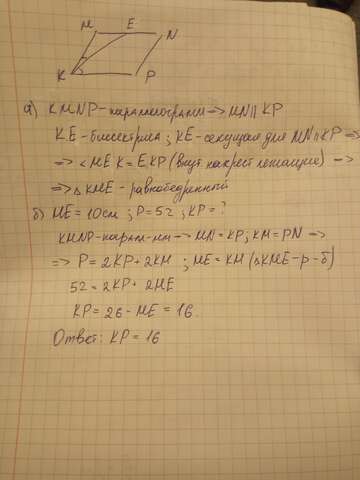 M E N
K P
а) KMNP - параллелограмм => MN || KP
KE - биссектриса ; KE - секущая для MN || KP =>
=> ∠MEK = EKP (внут. накрест лежащие) =>
=> △KME - равнобедренный
б) ME = 10 см ; P = 52 ; KP = ?
KMNP - парал-мм => MN = KP ; KM = PN =>
=> P = 2KP + 2KM ; ME = KM (△KME - р - б)
52 = 2KP + 2ME
KP = 26 - ME = 16.
Ответ: KP = 16